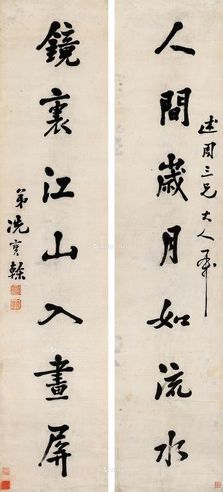 人間歲月如流水
述周三兄大人
鏡裏江山入畫屏
弟冼寶榦